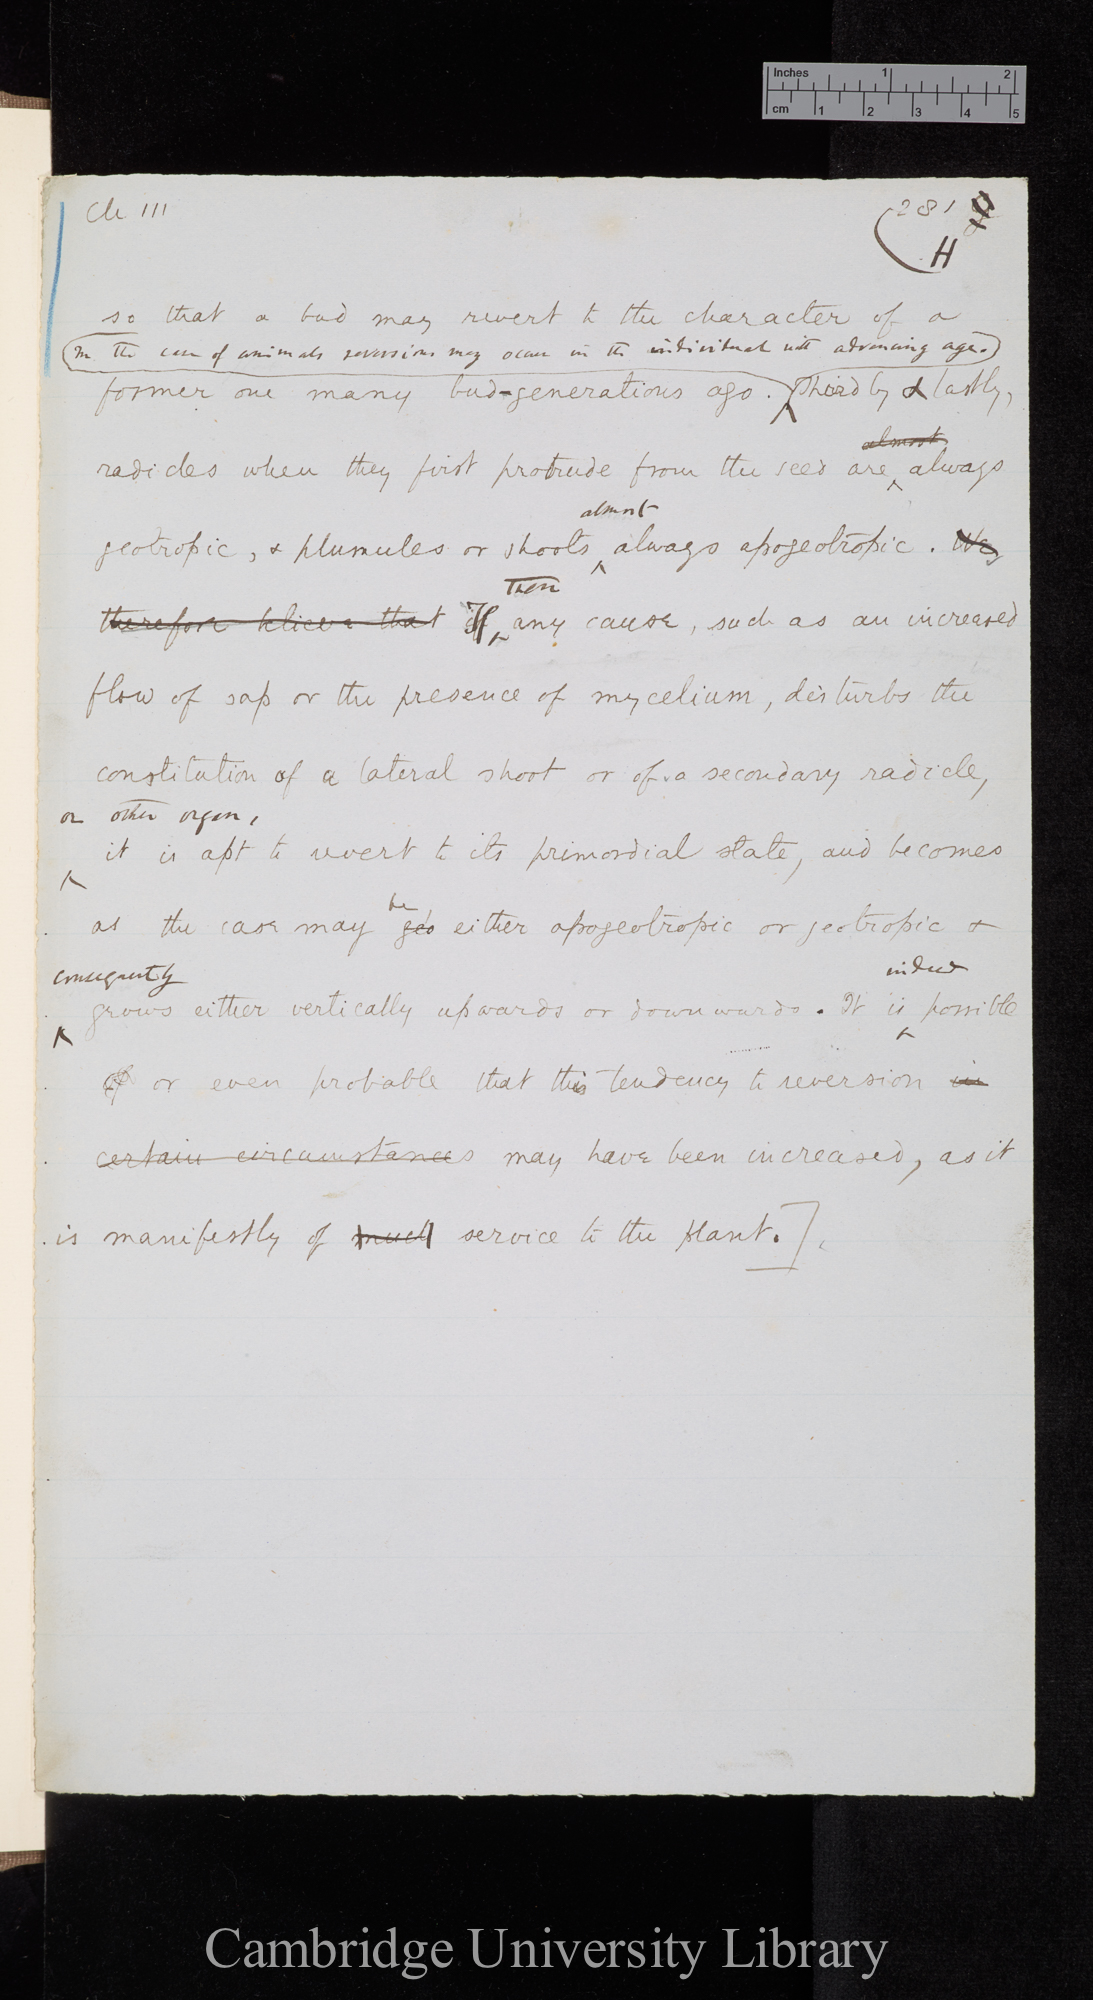 Inches 1 2
cm 1 2 3 4 5
Ch III
281
H
so that a bud may revert to the character of a
In the case of animals reversions may occur in the individual with advancing age.
former one many bud-generations ago. Thirdly & lastly,
almost
radicles when they first protrude from the seed are always
almost
geotropic, & plumules or shoots always apogeotropic. We
Then
therefore believe that If any cause, such as an increased
flow of sap or the presence of mycelium, disturbs the
constitution of a lateral shoot or of a secondary radicle,
or other organ,
it is apt to revert to its primordial state, and becomes
be
as the case may geo either apogeotropic or geotropic &
consequently
indeed
grows either vertically upwards or downwards. It is possible
or even probable that this tendency to reversion in
certain circumstances may have been increased, as it
is manifestly of much service to the plant.]
Cambridge University Library